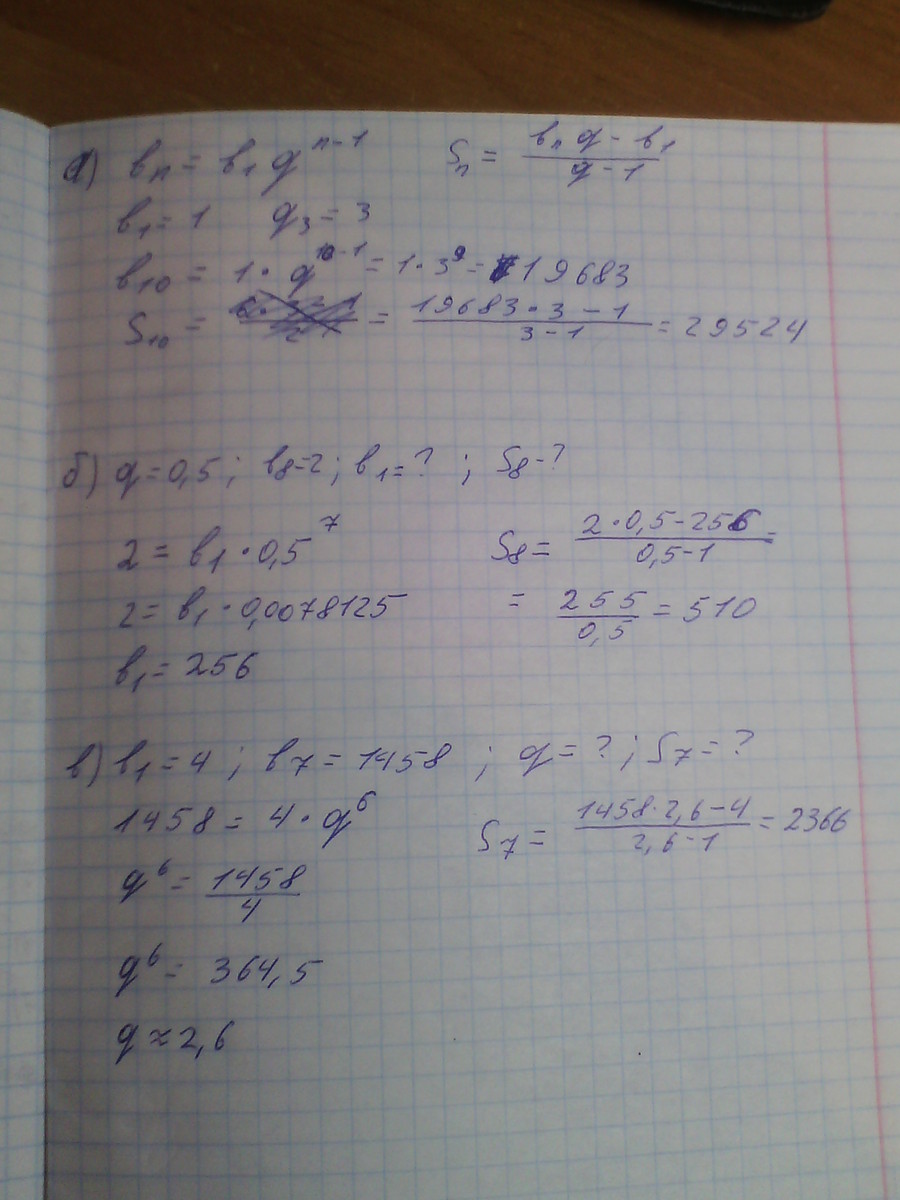 а) bₙ = b₁ qⁿ⁻¹   Sₙ = (bₙ q − b₁)/(q − 1)
b₁ = 1   q₃ = 3
b₁₀ = 1 · q¹⁰⁻¹ = 1 · 3⁹ = 19683
S₁₀ = = (19683 · 3 − 1)/(3 − 1) = 29524
б) q = 0,5 ; b₈ = 2 ; b₁ = ? ; S₈ − ?
2 = b₁ · 0,5⁷   S₈ = (2 · 0,5 − 256)/(0,5 − 1) =
2 = b₁ · 0,0078125   = 255/0,5 = 510
b₁ = 256
в) b₁ = 4 ; b₇ = 1458 ; q = ? ; S₇ = ?
1458 = 4 · q⁶   S₇ = (1458 · 2,6 − 4)/(2,6 − 1) = 2366
q⁶ = 1458/4
q⁶ = 364,5
q ≈ 2,6